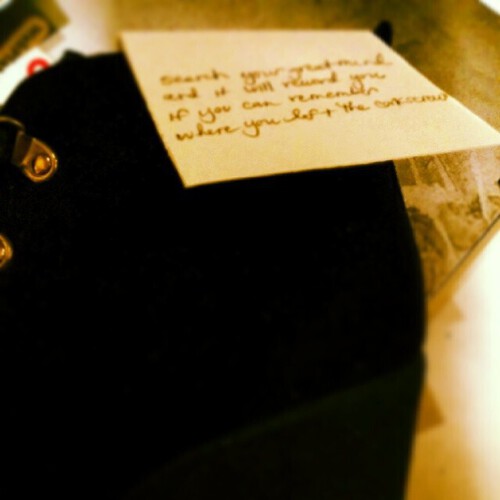 Search your great mind
and it will reward you
If you can remember
where you left the corkscrew